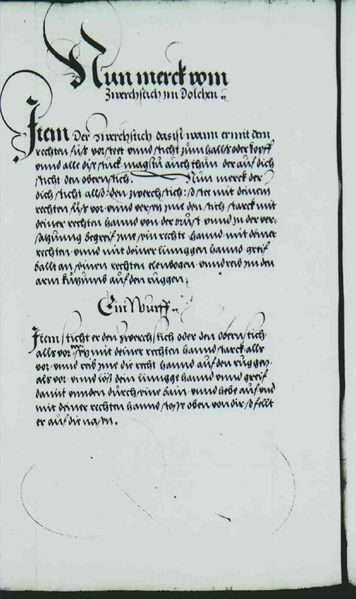 Nun merck vom
Zwerchstich im Dolchen
Item Der zwerchstich das ist wann er mit dem
rechten fůs vor steet unnd sticht zum halls oder kopff
unnd alle die stuck magstu auch thun der auf dich
sticht den oberstich. Nun merck der
dich sticht allso den zwerchstich: so stee mit deinem
rechten fůs vor unnd versetz jme den stich starck mit
deiner rechten hannd von der brust unnd in der ver
satzung begreif jme sein rechte hannd mit deiner
rechten unnd mit deiner linnggen hannd greif
ballt an seinen rechten elenbogen unnd reib im den
arm auf den ruggen
Ein Wurff
Item sticht er den zwerchstich oder den oberstich
alls vor mit deiner rechten hannd starck alls
vor unnd reib jme die recht hannd auf den ruggen
als vor unnd lös dein lingge hannd unnd greif
damit unnden durch seine bain unnd hebe auf und
mit deiner rechten hannd stosse oben von dir so fellt
er auf die nasen.